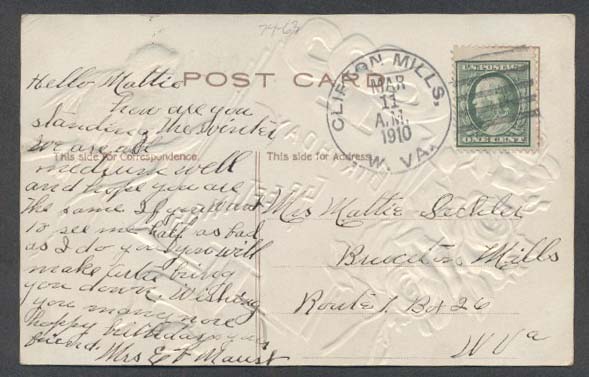 7463
POST CARD
CLIFTON MILLS,
MAR
11
A.M.
1910
W. VA.
U.S. POSTAGE
ONE CENT
Hello Mattie
how are you
standing the winter
we are all
This side for Correspondence.
medium well
and hope you are
the same If you want
to see me half as bad
as I do you you will
make
bring
you down, Wishing
you many more
happy birthdays your
friend. Mrs E F Maust
This side for Address
Mrs Mattie
Bruceton Mills
Route 1 Box 26
W Va